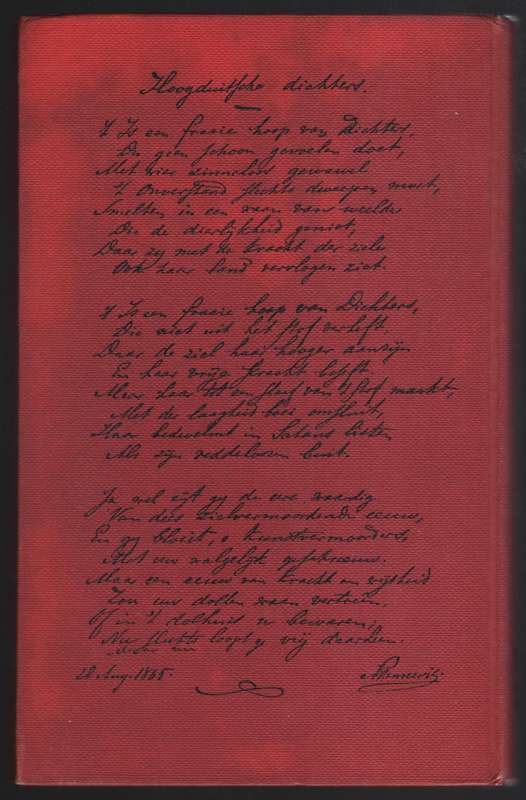 Hoogduitsche dichters.
't Is een fraaie hoop van Dichters,
Die geen schoon gevoelen doet,
Met vier zinneloos gewauel
't Onverstand slechts dweepen moet,
Smelten in een waan van weelde
Die de dierlijkheid geniet,
Daar zij met de kracht der ziele
Ook haar land vervlogen ziet.
't Is een fraaie hoop van Dichters,
Die niet uit het stof verheft,
Daar de ziel haar hooger aanzijn
En haar vrije kracht beseft.
Maar haar tot een slaaf van 't stof maakt,
Met der laagheid boei omsluit,
Haar bedwelmt in Satans listen
Als zijn reddeloozen buit.
Ja wel zijt gy de eere waardig
Van dees zielvermoordende eeuw,
En gy bloeit, o kunstvermoorders,
Met uw walgelyk geschreeuw.
Maar een eeuw van kracht en wijsheid
Zou uw dollen waan vertreên,
Of in 't dolhuis u bewaren;
Nu loopt gy vrij daarheen.
28 Aug. 1855.